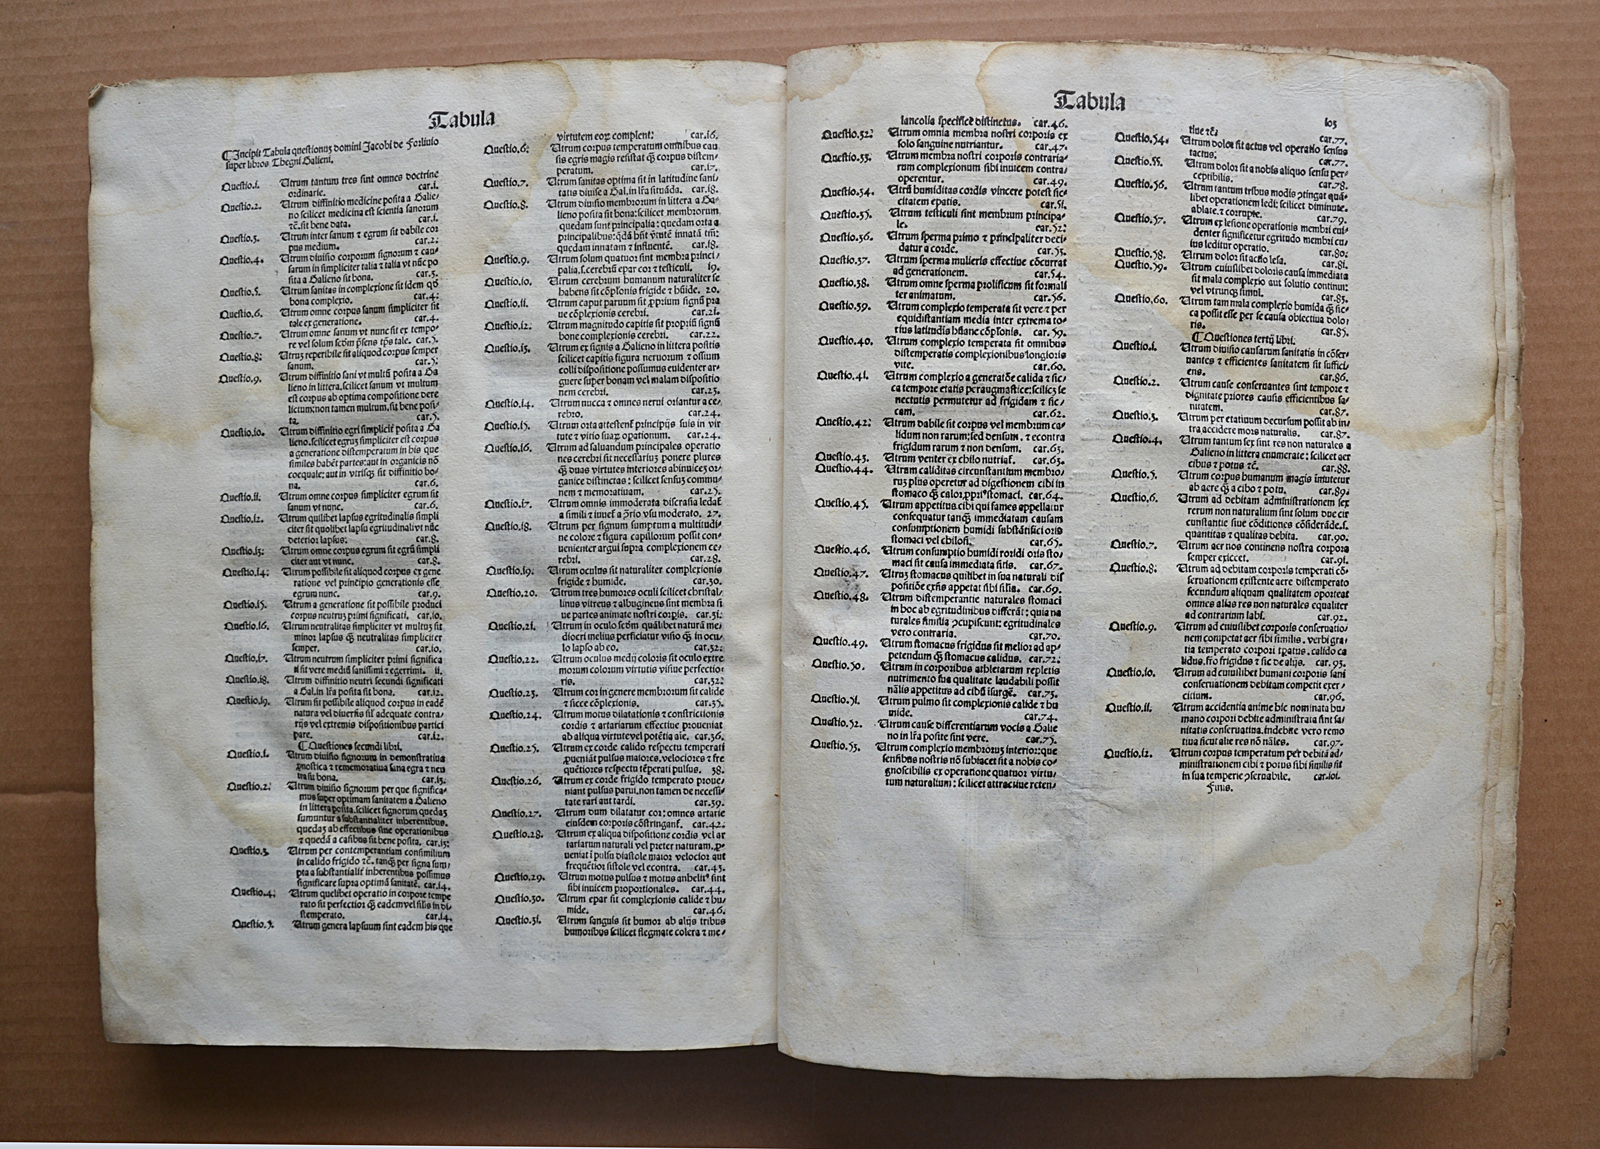 Tabula
Incipit Tabula questionuz domini Jacobi de Forliuio
super libros Thegni Galieni.
Questio.1. Utrum tantum tres sint omnes doctrine
ordinarie. car.1.
Questio.2. Utrum diffinitio medicine posita a Galie/
no scilicet medicina est scientia sanorum
⁊c̄. sit bene data. car.1.
Questio.3. Utrum inter sanum ⁊ egrum sit dabile cor
pus medium. car.2.
Questio.4. Utrum diuisio corporis signorum ⁊ cau/
sarum in simpliciter talia ⁊ talia vt nūc po
sita a Galieno sit bona. car.3.
Questio.5. Utrum sanitas in complexione sit idem qđ
bona complexio. car.4.
Questio.6. Utrum omne corpus sanum simpliciter sit
tale ex generatione. car.4.
Questio.7. Utrum omne sanum vt nunc sit ex tempo/
re vel solum scđm p̄sens tp̄s tale. car.5.
Questio.8. Utruz reperibile sit aliquod corpus semper
sanum. car.5.
Questio.9. Utrum diffinitio sani vt multū posita a Ga
lieno in littera.scilicet sanum vt multum
est corpus ab optima compositione dere
lictum:non tamen multum.sit bene posi/
ta.
Questio.10. Utrum diffinitio egri simplicit̄ posita a Ga
lieno.scilicet egruz simpliciter est corpus
a generatione distemperatum in his que
similes habēt partes:aut in organicis nō
coequale:aut in virisqz sit diffinitio bo/
na. car.6.
Questio.11. Utrum omne corpus simpliciter egrum sit
sanum vt nunc. car.6.
Questio.12. Utrum quilibet lapsus egritudinalis simpli
citer sit quolibet lapsu egritudinali vt nūc
deterior lapsus. car.8.
Questio.13. Utrum omne corpus egrum sit egrū simpli
citer aut vt nunc. car.8.
Questio.14. Utrum possibile sit aliquod corpus ex gene
ratione vel principio generationis esse
egrum nunc. car.9.
Questio.15. Utrum a generatione sit possibile produci
corpus neutruz primi significati. car.10.
Questio.16. Utrum neutralitas simpliciter vt multuz sit
minor lapsus q̄ neutralitas simpliciter
semper. car.10.
Questio.17. Utrum neutrum simpliciter primi significa
ti sit vere mediū sanissimi ⁊ egerrimi. 11.
Questio.18. Utrum diffinitio neutri secundi significati
a Gal.in lr̄a posita sit bona. car.12.
Questio.19. Utrum sit possibile aliquod corpus in eadē
natura vel diuersis sil̄ adequate contra/
rijs vel extremis dispositionibus partici
pare. car.12.
Questiones secundi libri.
Questio.1. Utrum diuisio signorum in demonstratiua
gnostica ⁊ rememoratiua sana egra ⁊ neu
tra sit bona. car.13.
Questio.2. Utrum diuisio signorum per que significa/
mus super optimam sanitatem a Galieno
in littera posita.scilicet signorum quedaz
sumuntur a substantialiter inherentibus.
quedaz ab effectibus siue operationibus
⁊ quedā a casibus sit bene posita. car.13.
Questio.3. Utrum per contemperantiam consimilium
in calido frigido ⁊c̄. tanqz per signa sum/
pta a substantialit̄ inherentibus possimus
significare supra optimā sanitatē. car.14.
Questio.4. Utrum quelibet operatio in corpore tempe
rato sit perfectior q̄ eadem vel silis in di/
stemperato. car.14.
Questio.5. Utrum genera lapsuum sint eadem his que
virtutem eorz complent. car.16.
Questio.6. Utrum corpus temperatum omnibus cau
sis egris magis resistat q̄ corpus distem/
peratum. car.17.
Questio.7. Utrum sanitas optima sit in latitudine sani/
tatis diuise a Gal.in lr̄a situāda. car.18.
Questio.8. Utrum diuisio membrorum in littera a Ga/
lieno posita sit bona:scilicet membrorum
quedam sunt principalia: quedam orta a
principalibus:q̄dā hn̄t v̄tutē innatā tm̄:
quedam innatam ⁊ influentē. car.18.
Questio.9. Utrum solum quatuor sint membra princi/
palia.s.cerebrū epar cor ⁊ testiculi. 19.
Questio.10. Utrum cerebrum humanum naturaliter se
habens sit cōplōnis frigide ⁊ hūide. 20.
Questio.11. Utrum caput paruum sit p̄prium signū pra
ue cōplexionis cerebri. car.21.
Questio.12. Utrum magnitudo capitis sit propriū signū
bone complexionis cerebri. car.22.
Questio.13. Utrum ex signis a Galieno in littera positis
scilicet capitis figura neruorum ⁊ ossium
colli dispositione possumus euidenter ar/
guere super bonam vel malam dispositio
nem cerebri. car.23.
Questio.14. Utrum nucca ⁊ omnes nerui oriantur a ce/
rebro. car.24.
Questio.15. Utrum orta attestent̄ principijs suis in vir
tute ⁊ virtu suaz opationum. car.24.
Questio.16. Utrum ad saluandum principales operatio
nes cerebri sit necessariuz ponere plures
q̄ duas virtutes interiores abinuicez or/
ganice distinctas : scilicet sensuz commu/
nem ⁊ memoratiuam. car.25.
Questio.17. Utrum omnis immoderata discrasia ledat̄
a simili ⁊ iuuet̄ a p̄rio vsu moderato. 27.
Questio.18. Utrum per signum sumptum a multitudi/
ne colore ⁊ figura capillorum possit con/
uenienter argui supra complexionem ce/
rebri. car.28.
Questio.19. Utrum oculus sit naturaliter complexionis
frigide ⁊ humide. car.30.
Questio.20. Utrum tres humores oculi scilicet christal/
linus vitreus ⁊ albugineus sint membra si
ue partes animate nostri corpis. car.31.
Questio.21. Utrum in oculo scđm qualibet naturā me/
diocri melius perficiatur visio q̄ in ocu/
lo lapso ab eo. car.32.
Questio.22. Utrum oculus medij coloris sit oculo extre
morum colorum virtutis visiue perfectio/
ris. car.32.
Questio.23. Utrum cor in genere membrorum sit calide
⁊ sicce cōplexionis. car.35.
Questio.24. Utrum motus dilatationis ⁊ constrictionis
cordis ⁊ artariarum effectiue proueniat
ab aliqua virtute vel potētia aīe. car.36.
Questio.25. Utrum ex corde calido respectu temperati
pueniāt pulsus maiores.velociores ⁊ fre
quētiores respectu tēperati pulsus. 38.
Questio.26. Utrum ex corde frigido temperato proue/
niant pulsus parui.non tamen de necessi/
tate rari aut tardi. car.39.
Questio.27. Utrum dum dilatatur cor:omnes artarie
eiusdem corporis cōstringant̄. car.42.
Questio.28. Utrum ex aliqua dispositione cordis vel ar
tariarum naturali vel preter naturam.p̄
ueniat ī pulsu diastole maior velocior aut
frequētior sistole vel econtra. car.43.
Questio.29. Utrum motus pulsus ⁊ motus anhelitꝰ sint
sibi inuicem proportionales. car.44.
Questio.30. Utrum epar sit complexionis calide ⁊ hu/
mide. car.46.
Questio.31. Utrum sanguis sit humor ab alijs tribus
humoribus scilicet flegmate colera ⁊ me/
Tabula
103
lancolia specifice distinctus. car.46.
Questio.32. Utrum omnia membra nostri corporis ex
solo sanguine nutriantur. car.47.
Questio.33. Utrum membra nostri corporis contraria/
rum complexionum sibi inuicem contra/
operentur. car.49.
Questio.34. Utrū humiditas cordis vincere potest sic/
citatem epatis. car.51.
Questio.35. Utrum testiculi sint membrum principa/
le. car.52.
Questio.36. Utrum sperma primo ⁊ principaliter deci/
datur a corde. car.53.
Questio.37. Utrum sperma mulieris effectiue cōcurrat
ad generationem. car.54.
Questio.38. Utrum omne sperma prolificum sit formali
ter animatum. car.56.
Questio.39. Utrum complexio temperata sit vere ⁊ per
equidistantiam media inter extrema to/
tius latitudis hūane cōplōnis. car.59.
Questio.40. Utrum complexio temperata sit omnibus
distemperatis complexionibus longioris
vite. car.60.
Questio.41. Utrum complexio a generatōe calida ⁊ sic/
ca tempore etatis peraugmasticē:scilicz se
nectutis permutetur ad frigidam ⁊ sic/
cam. car.62.
Questio.42. Utrum dabile sit corpus vel membrum ca/
lidum non rarum:sed densum . ⁊ econtra
frigidum rarum ⁊ non densum. car.63.
Questio.43. Utrum venter ex chilo nutriat̄. car.63.
Questio.44. Utrum caliditas circunstantium membro/
ruz plus operetur ad digestionem cibi in
stomaco q̄ calor p̄priꝰ stomaci. car.64.
Questio.45. Utrum appetitus cibi qui fames appellatur
consequatur tanqz immediatam causam
consumptionem humidi substātifici oris
stomaci vel chilosi. car.65.
Questio.46. Utrum consumptio humidi roridi oris sto/
maci sit causa immediata sitis. car.67.
Questio.47. Utruz stomacus quilibet in sua naturali dis
positiōe exn̄s appetat sibi silia. car.69.
Questio.48. Utrum distemperantie naturales stomaci
in hoc ab egritudinibus differāt: quia na
turales similia ꝯcupiscunt: egritudinales
vero contraria. car.70.
Questio.49. Utrum stomacus frigidus sit melior ad ap/
petendum q̄ stomacus calidus. car.72.
Questio.50. Utrum in corporibus athletarum repletis
nutrimento sua qualitate laudabili possit
nālis appetitus ad cibū isurgē. car.73.
Questio.51. Utrum pulmo sit complexionis calide ⁊ hu
mide. car.74.
Questio.52. Utrum cause differentiarum vocis a Galie
no in lr̄a posite sint vere. car.75.
Questio.53. Utrum complexio membroruz interior:que
sensibus nostris nō subiacet sit a nobis co/
gnoscibilis ex operatione quatuor virtu/
tum naturalium : scilicet attractiue reten/
tiue ⁊c̄. car.77.
Questio.54. Utrum dolor sit actus vel operatio sensus
tactus. car.77.
Questio.55. Utrum dolor sit a nobis aliquo sensu per/
ceptibilis. car.78.
Questio.56. Utrum tantum tribus modis ꝯtingat quā/
libet operationem ledi: scilicet diminute.
ablate.⁊ corrupte. car.79.
Questio.57. Utrum ex lesione operationis membri eui/
denter significetur egritudo membri cu/
ius leditur operatio. car.80.
Questio.58. Utrum dolor sit actio lesa. car.81.
Questio.59. Utrum cuiuslibet doloris causa immediata
sit mala complexio aut solutio continui:
vel vtrunqz simul. car.83.
Questio.60. Utrum tam mala complexio humida q̄ sic/
ca possit esse per se causa obiectiua dolo/
ris. car.85.
Questiones tertij libri.
Questio.1. Utrum diuisio causarum sanitatis in cōser/
uantes ⁊ efficientes sanitatem sit suffici/
ens. car.86.
Questio.2. Utrum cause conseruantes sint tempore ⁊
dignitate priores causis efficientibus sa/
nitatem. car.87.
Questio.3. Utrum per etatium decursum possit ab in/
tra accidere mors naturalis. car.87.
Questio.4. Utrum tantum sex sint res non naturales a
Galieno in littera enumerate : scilicet aer
cibus ⁊ potus ⁊c̄. car.88.
Questio.5. Utrum corpus humanum magis imutetur
ab aere q̄ a cibo ⁊ potu. car.89.
Questio.6. Utrum ad debitam administrationem sex
rerum non naturalium sint solum due cir
cunstantie siue cōditiones cōsiderāde.s.
quantitas ⁊ qualitas debita. car.90.
Questio.7. Utrum aer nos continens nostra corpora
semper exiccet. car.91.
Questio.8. Utrum ad debitam corporis temperati cō/
seruationem existente aere distemperato
secundum aliquam qualitatem oporteat
omnes alias res non naturales equaliter
ad contrarium labi. car.92.
Questio.9. Utrum ad cuiuslibet corporis conseruatio/
nem competat aer sibi similis. verbi gra/
tia corpori tēperato tēpatus .calido ca
lidus.fr̄o frigidus ⁊ sic de alijs. car.95.
Questio.10. Utrum ad cuiuslibet humani corporis sani
conseruationem debitam competit exer/
citium. car.96.
Questio.11. Utrum accidentia anime hic nominata hu/
mano corpori debite administrata sint sa/
nitatis conseruatiua.indebite vero remo
tiua sicut alie res nō nāles. car.97.
Questio.12. Utrum corpus temperatum per debitā ad/
ministrationem cibi ⁊ potus sibi similis sit
in sua temperie p̄seruabile. car.101.
Finis.